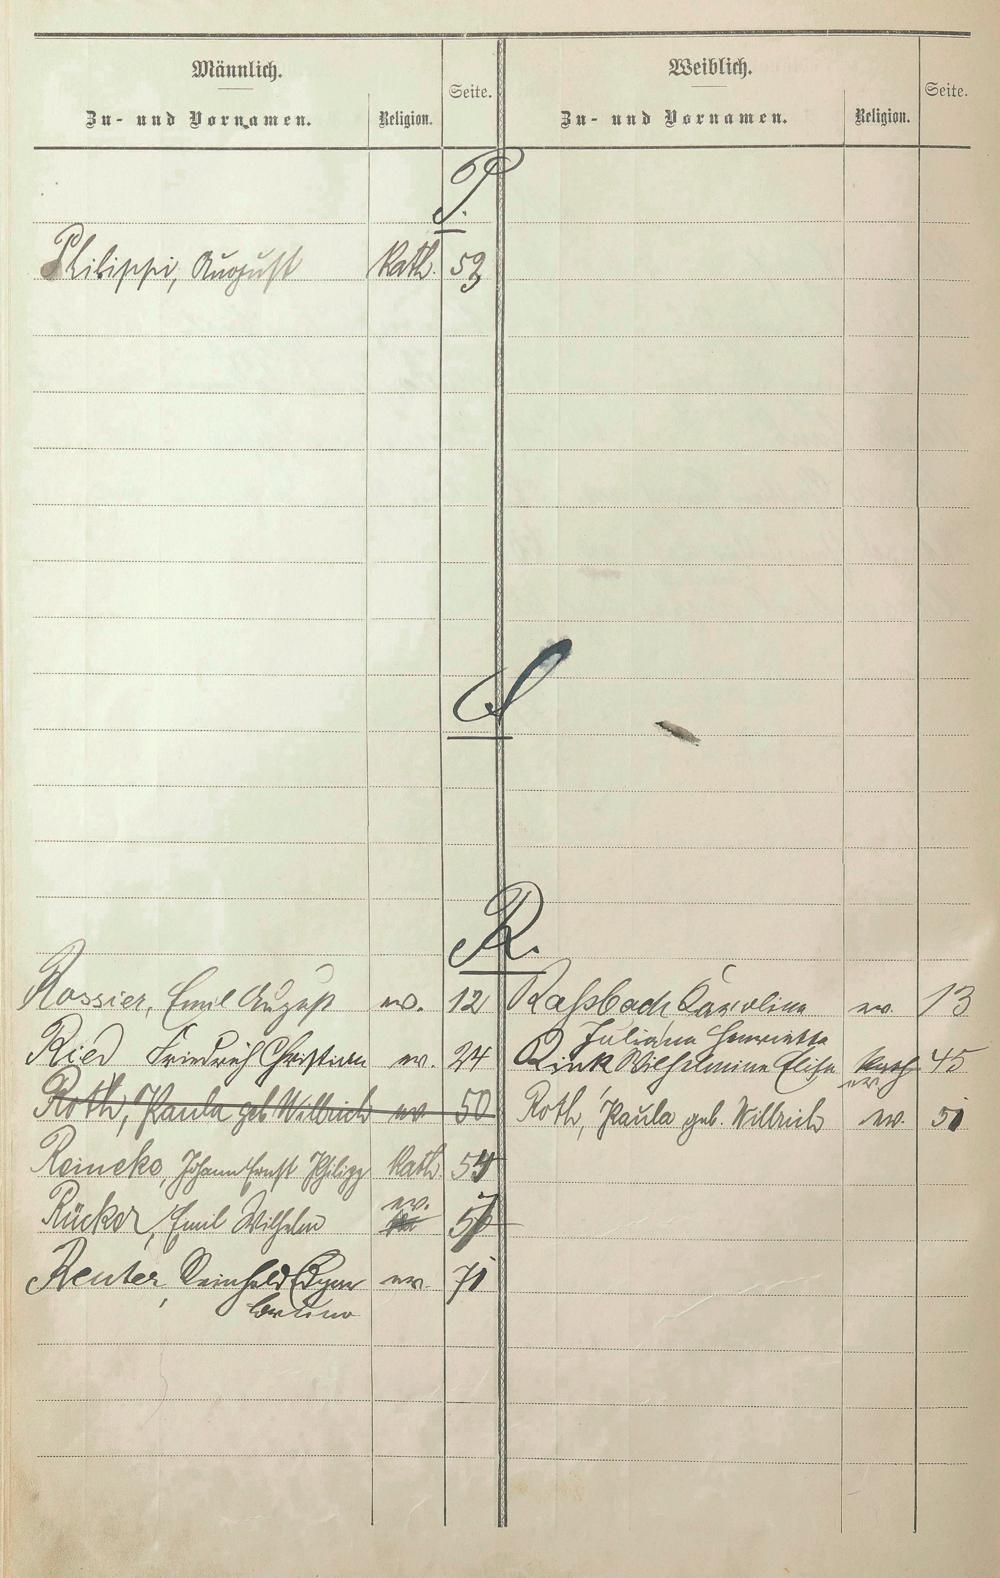 Männlich. Weiblich.
Seite. Seite.
Zu- und Vornamen. Religion. Zu- und Vornamen. Religion.
P.
Philippi, August Kath. 53
R.
Rossier, Emil August ev. 12 Raßbach Caroline ev. 13
Juliana Henriette
Ried Friedrich Christian ev. 24 Rink Wilhelmine Elise Kath 45
ev.
Roth, Paula geb Willrich ev 50 Roth, Paula geb. Willrich ev. 51
Reineke, Johann Ernst Philipp Kath. 54
ev.
Rücker, Emil Wilhelm 57
Reuter, Reinhold ev. 71